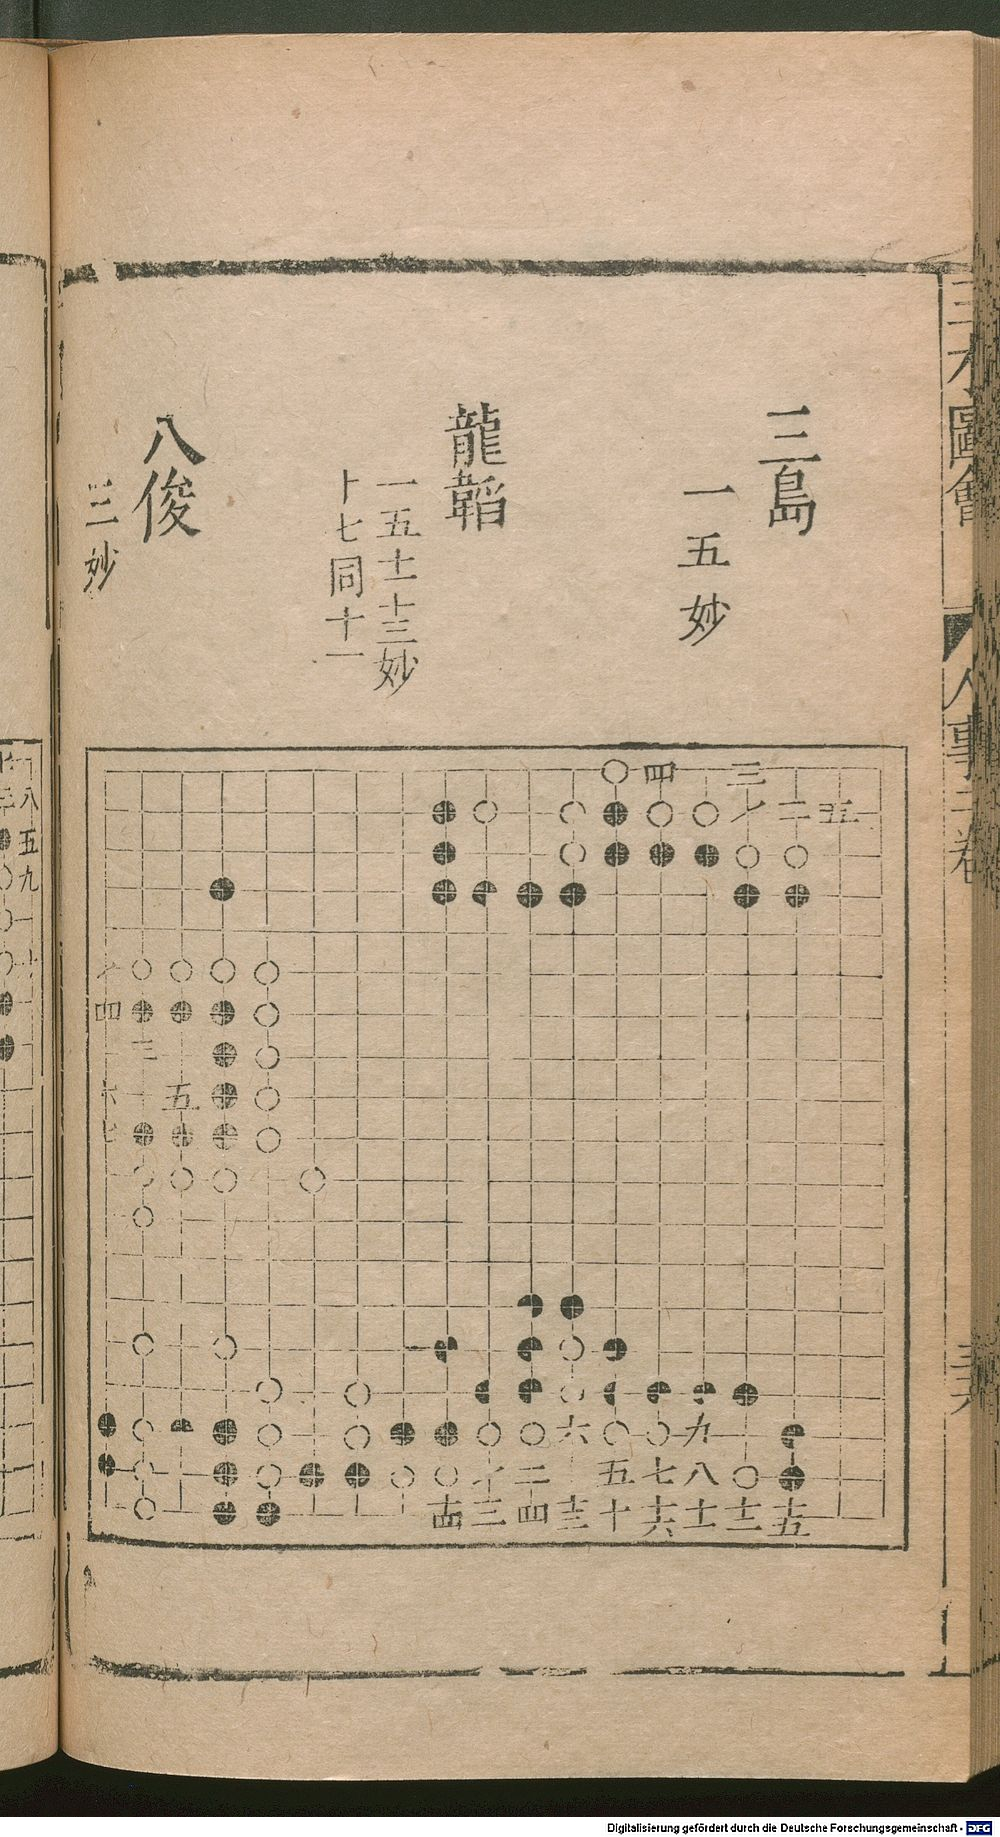 三才圖會
人事二卷
三島
一五妙
龍韜
一五十一十三妙
十七同十一
八俊
三妙
四 三
一 二 五
一
四
三
六 五
七
六 九
一 二 五 七 八
十四 三 四 十三 十 十六 十一 十二 十五
八
五
九
Digitalisierung gefördert durch die Deutsche Forschungsgemeinschaft - DFG